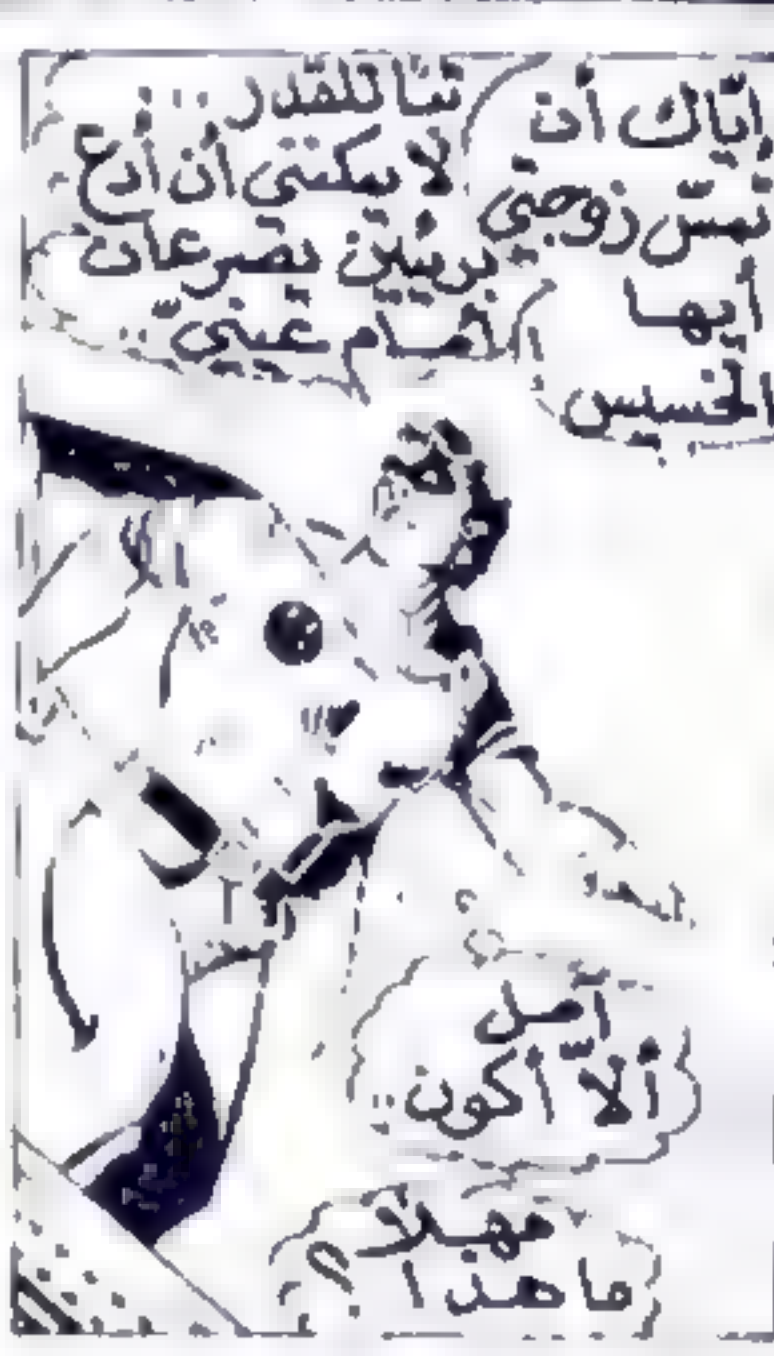 إيّاك أن
تمسّ زوجتي
أيها
الخسيس
تبّا للقدر ...
لا يمكنني أن أدع
بريئين يصرعان
أمام عينيّ ..
آمل
ألاّ أكون ..
مهلا
ما هذا ؟